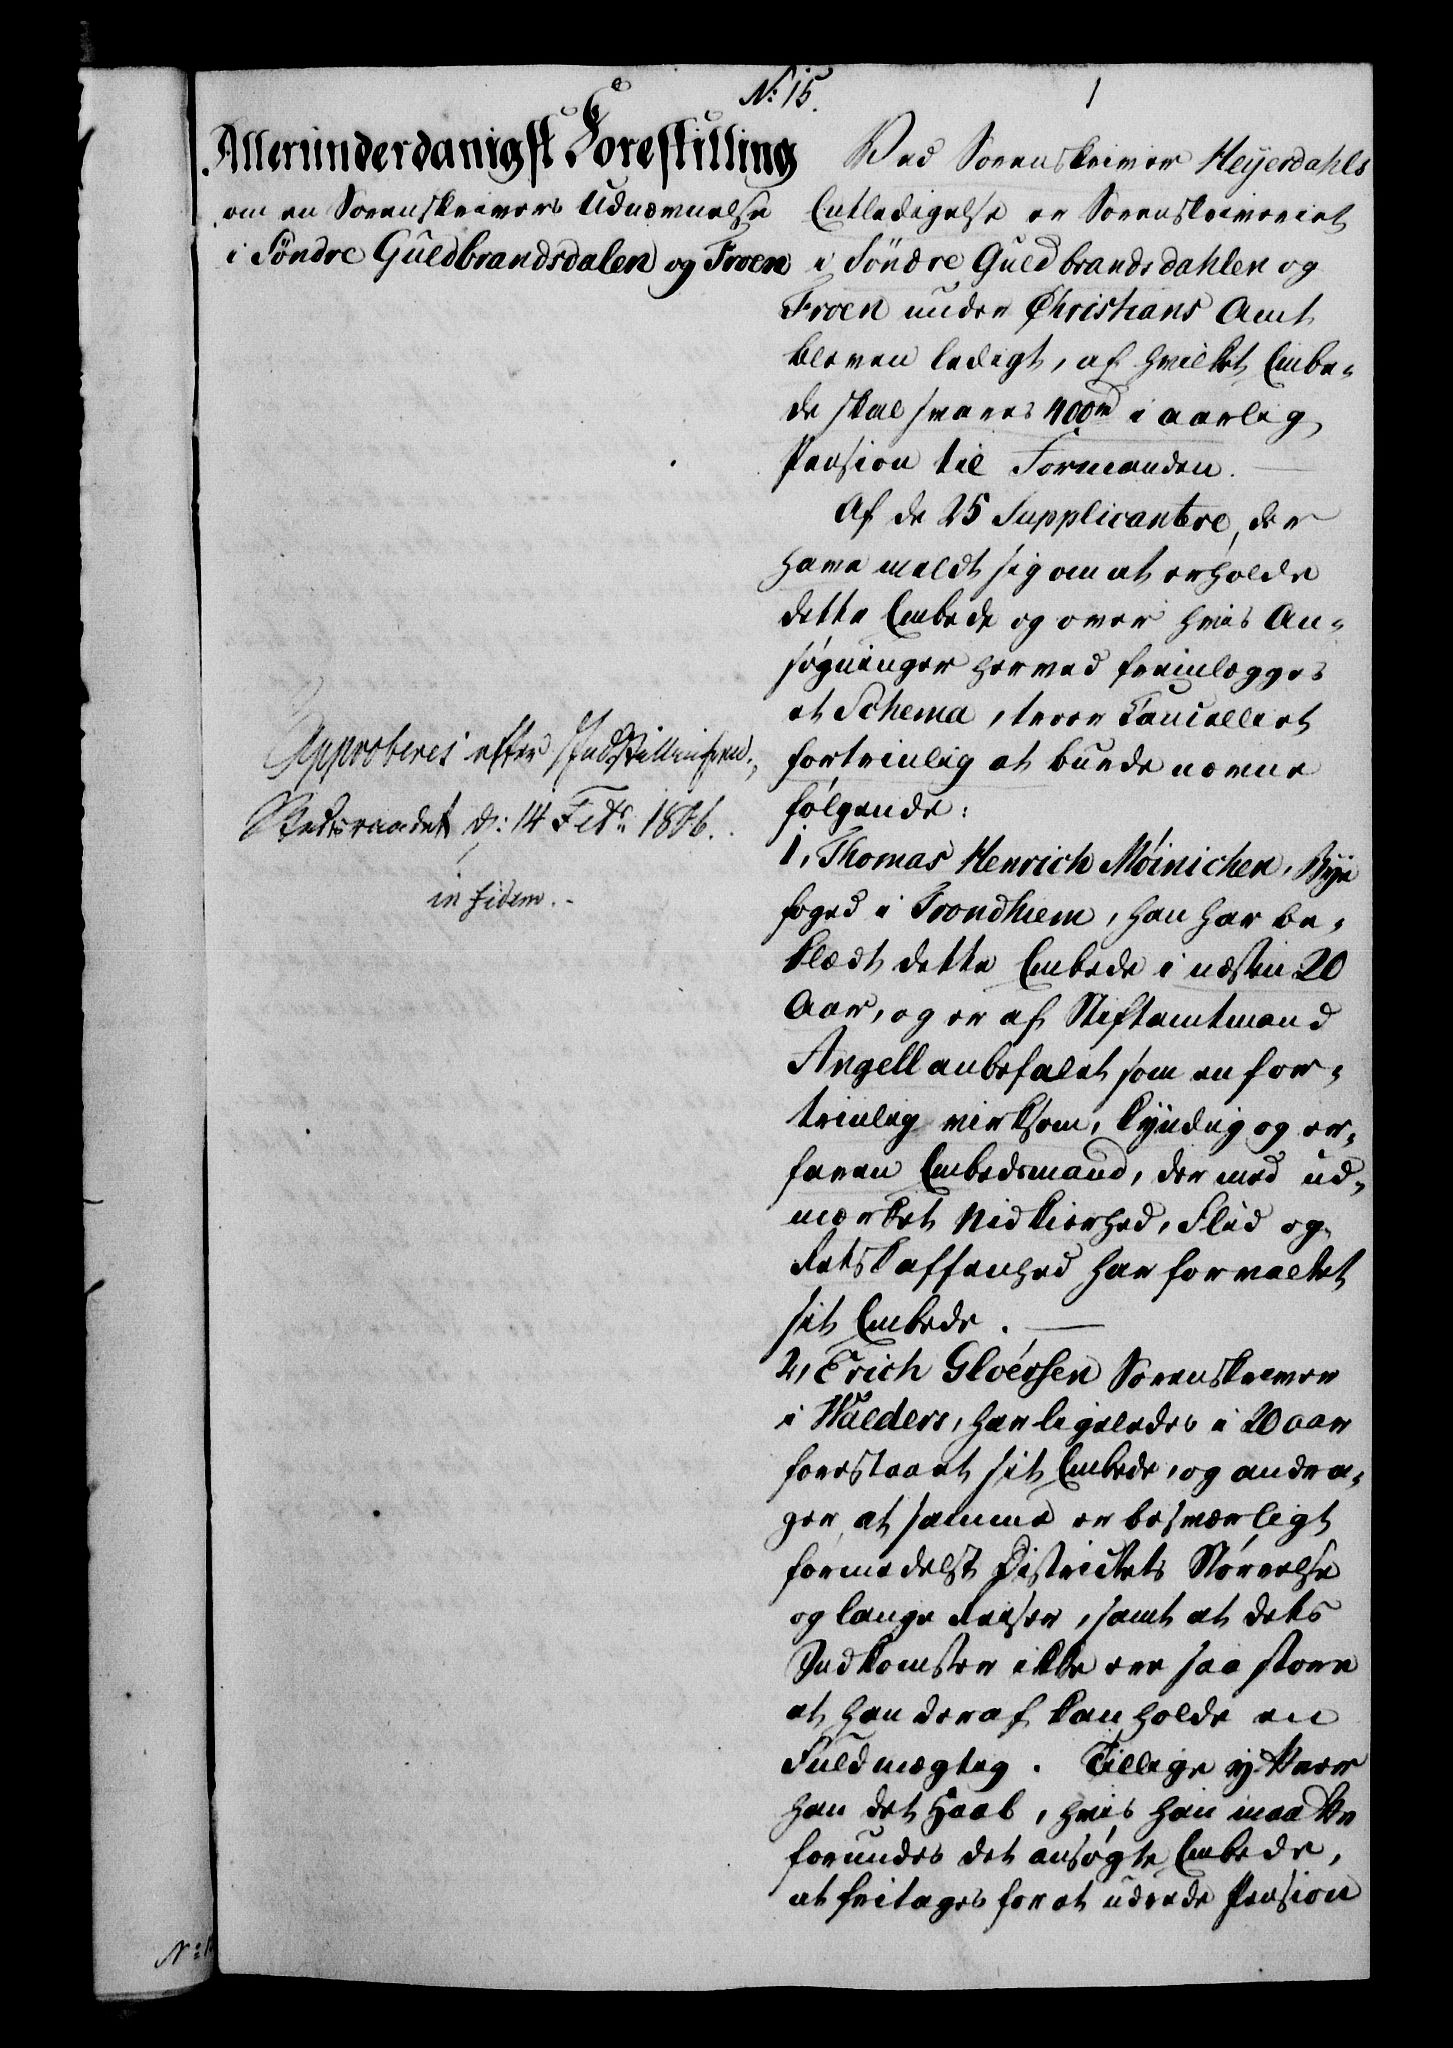 No: 15.
1
Allerunderdanigst Forestilling
om en Sorenskrivers Udnævnelse
i Söndre Guldbrandsdalen og Froen
Approberes efter Indstillingen.
Statsraadet d: 14 Febr. 1826.
in fidem.
Ved Sorenskriver Heyerdahls
Entledigelse er Sorenskriveriet
i Söndre Guldbrandsdahlen og
Froen under Christians Amt
bleven ledigt, af hvilket Embe-
de skal svares 400rd i aarlig
Pension til Formanden.
Af de 25 Supplicantere, der
have meldt sig om at erholde
dette Embede og over hvis An-
søgninger herved fremlægges
et Schema, troer Cancelliet
fortrinlig at burde nævne
følgende:
1, Thomas Henrich Möinichen, Bye
foged i Trondhiem, han har be-
klædt dette Embede i næsten 20
Aar, og er af Stiftamtmand
Angell anbefalet som en for-
trinlig virksom, kyndig og er-
faren Embedsmand, der med ud-
mærket Nidkierhed, Flid og
Retskaffenhed har forvaltet
sit Embede.
2, Erich Gloersen Sorenskriver
i Walders, har ligeledes i 20 aar
forestaaet sit Embede, og andra-
ger at samme er besværligt
formedelst Districtets Størrelse
og lange Reiser, samt at dets
Indkomster ikke ere saa store
at han deraf kan holde en
Fuldmægtig. Tillige yttrer
han det Haab, hvis han maatte
forundes det ansøgte Embede,
at fritages for at udrede Pension